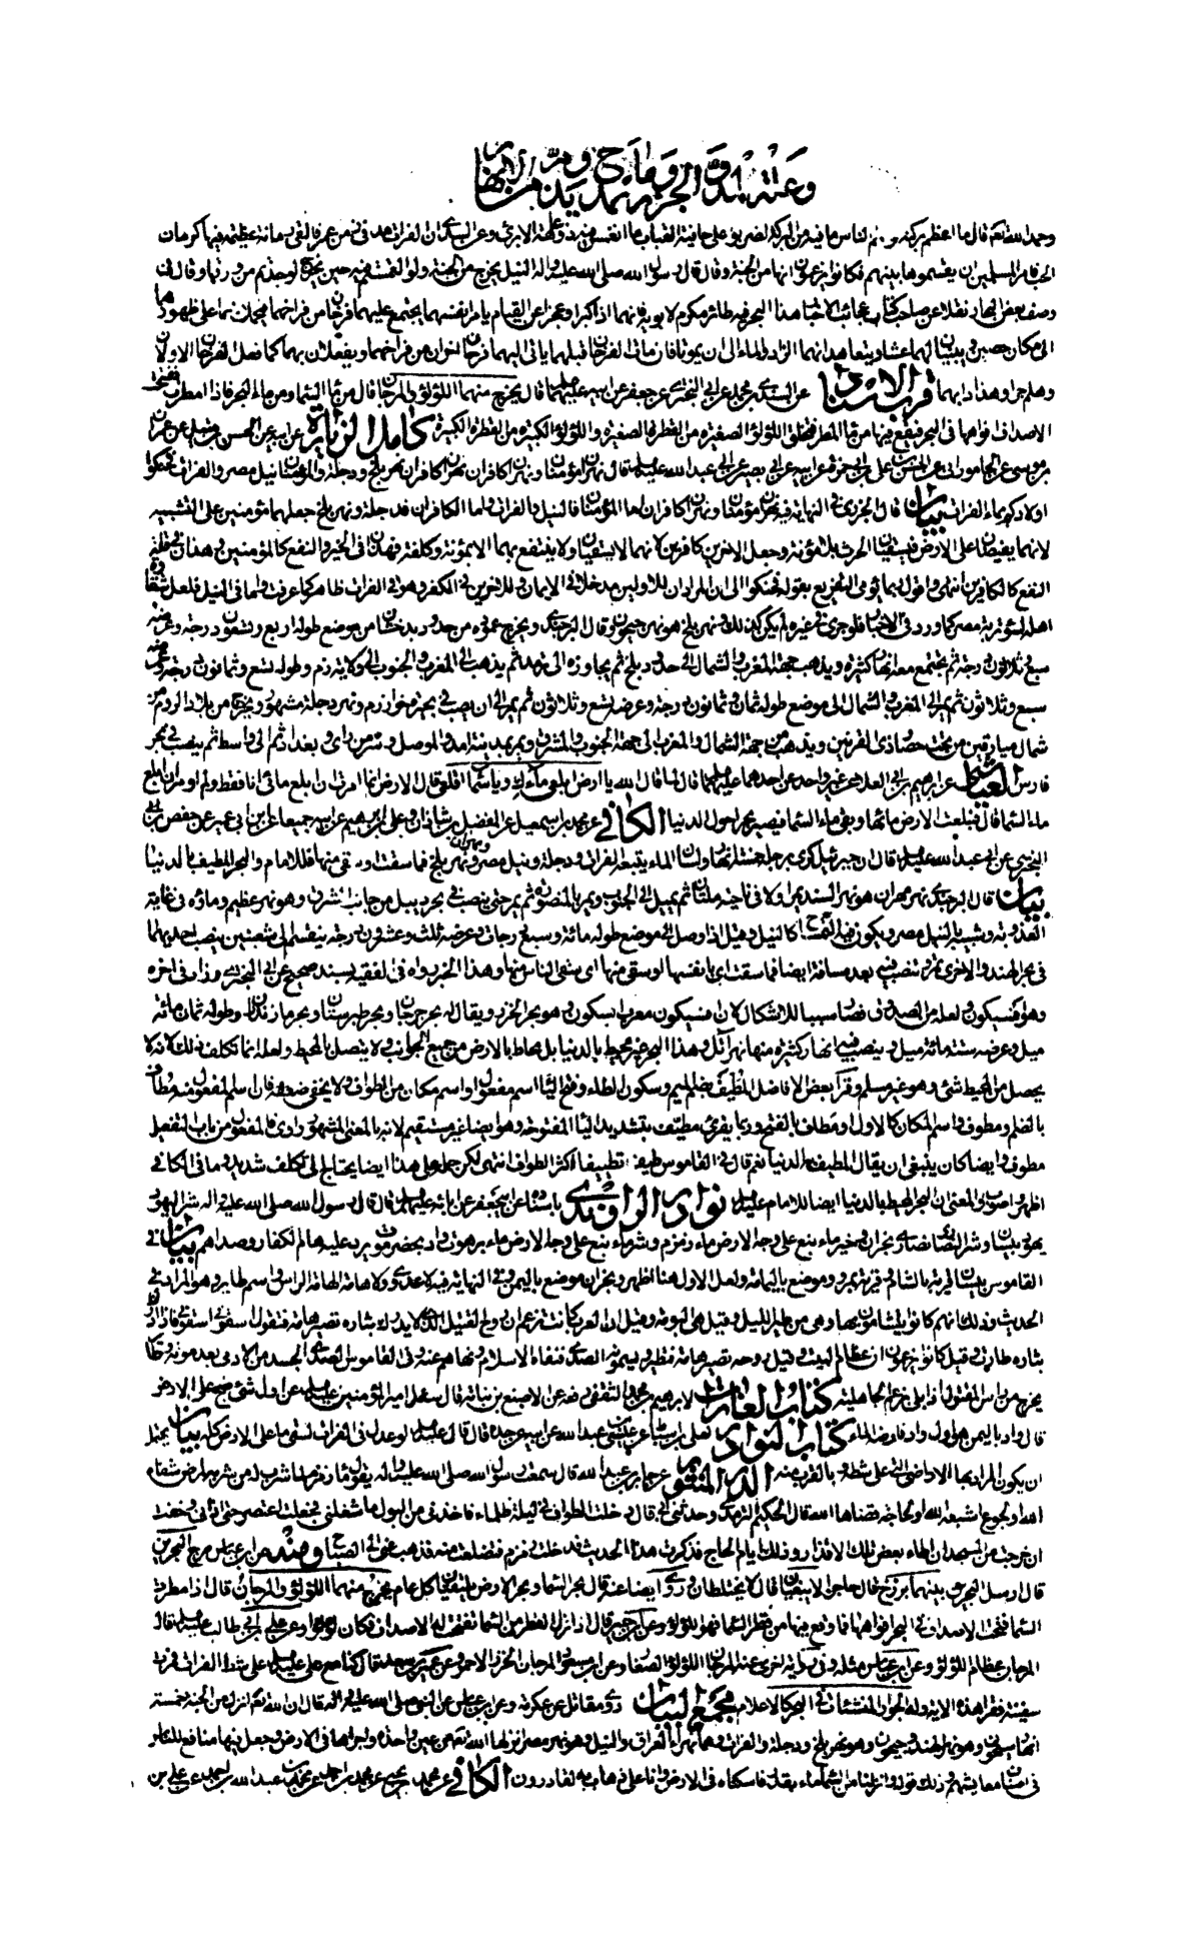 وعلة المد والجزر وما يمد من الأنهار
وحمد الله ثم قال ما اعظم بركته ولو يعلم الناس ما فيه من البركة لضربوا على حافتيه القباب وعن السدي ان الفرات مد في زمن عمر فالقى رمانة عظيمة فيها كر من
الحب فامر المسلمين ان يقسموها بينهم فكانوا يزعمون انها من الجنة وقال قال رسول الله صلى الله عليه واله النيل يخرج من الجنة ولو التمستم فيه حين يخرج لوجدتم من ورقها وقال في
وصف بعض البحار نقلا عن صاحب كتاب عجائب الاخبار هذا البحر فيه طائر مكرم لابويه فانهما اذا كبرا وعجزا عن القيام بامر انفسهما يجتمع عليهما فرخان من فراخهما فيحملانهما على ظهورهما
الى مكان حصين ويبنيان لهما عشا ويتعاهدانهما الزاد والماء الى ان يموتا فان مات الفرخان قبلهما ياتي اليهما فرخان اخران من فراخهما ويفعلان بهما كما فعل الفرخان الاولان
وهلم جرا وهذا دابهما قرب الاسناد عن السندي بن محمد عن ابي البختري عن جعفر عن ابيه عليهما السلام قال يخرج منهما اللؤلؤ والمرجان قال من ماء السماء ومن ماء البحر فاذا امطرت فتحت
الاصداف افواهها في البحر فيقع فيها من ماء المطر فتخلق اللؤلؤة الصغيرة من القطرة الصغيرة واللؤلؤة الكبيرة من القطرة الكبيرة كامل الزيارة عن ابيه عن الحسن بن متيل عن عمران
بن موسى عن الجاموراني عن الحسن بن علي بن ابي حمزة عن ابيه عن ابي بصير عن ابي عبد الله عليه السلام قال نهران مؤمنان ونهران كافران نهران كافران نهر بلخ ودجلة والمؤمنان نيل مصر والفرات فحنكوا
اولادكم بماء الفرات بيان قال الجزري في النهاية فيه نهران مؤمنان ونهران كافران اما المؤمنان فالنيل والفرات واما الكافران فدجلة ونهر بلخ جعلهما مؤمنين على التشبيه
لانهما يفيضان على الارض فيسقيان الحرث بلا مؤنة وجعل الاخرين كافرين لانهما لا يسقيان ولا ينتفع بهما الا بمؤنة وكلفة فهذان في الخير والنفع كالمؤمنين وهذان في قلة
النفع كالكافرين انتهى واقول ربما يومي التفريع بقوله فحنكوا الى ان المراد ان للاولين مدخلا في الايمان وللاخرين في الكفر وهو في الفرات ظاهر كما عرفت واما في النيل فلعل شقاوة
اهله لسوء تربة مصر كما ورد في الاخبار فلو جرى في غيره لم يكن كذلك ونهر بلخ هو نهر جيحون وقال البرجندي ويخرج عموده من حدود بدخشان من موضع طوله اربع وتسعون درجة وعرضه
سبع وثلاثون درجة ثم يجتمع معه انهار كثيرة ويذهب الى جهة المغرب والشمال الى حدود بلخ ثم يجاوزه الى ترمد ثم يذهب الى المغرب والجنوب الى ولاية زم وطوله تسع وثمانون درجة وعرضه
سبع وثلاثون ثم يمر الى المغرب والشمال الى موضع طوله ثمان وثمانون درجة وعرضه تسع وثلاثون ثم يمر الى ان يصب في بحيرة خوارزم ونهر دجلة مشهور ويخرج من بلاد الروم من
شمال ميارفقين من تحت حصار ذي القرنين ويذهب من جهة الشمال والمغرب الى جهة الجنوب والمشرق ويمر بمدينة امد والموصل وسر من راى وبغداد ثم الى واسط ثم يصب في بحر
فارس العياشي عن ابراهيم بن ابي العلاء عن غير واحد عن احدهما عليهما السلام قال لما قال الله يا ارض ابلعي ماءك ويا سماء اقلعي قال الارض انما امرت ان ابلع مائي انا فقط ولم اومر ان ابلع
ماء السماء قال فبلعت الارض ماءها وبقي ماء السماء فصير بحرا حول الدنيا الكافي عن محمد بن اسمعيل عن الفضل بن شاذان وعلي بن ابرهيم عن ابيه جميعا عن ابن ابي عمير عن حفص بن
البختري عن ابي عبد الله عليه السلام قال ان جبرئيل كرى برجله خمسة انهار ولسان الماء يتبعه الفرات ودجلة ونيل مصر ومهران ونهر بلخ فما سقت او سقي منها فللامام والبحر المطيف بالدنيا
بيان قال البرجندي نهر مهران هو نهر السند يمر اولا في ناحية ملتان ثم يميل الى الجنوب ويمر بالمنصورة ثم يمر حتى ينصب في بحر ديبل من جانب المشرق وهو نهر عظيم وماؤه في غاية
العذوبة وشبيه بنيل مصر ويكون فيه التمساح كالنيل وقيل اذا وصل الى موضع طوله مائة وسبع درجات وعرضه ثلث وعشرون درجة ينقسم الى شعبتين ينصب احديهما
في بحر الهند والاخرى تمر وتنصب فيه بعد مسافة ايضا فما سقت اي بانفسها او سقي منها اي سقى الناس منها وهذا الخبر رواه في الفقيه بسند صحيح عن ابي البختري وزاد في اخره
وهو افسيكون ولعله من الصدوق فصار سببا للاشكال لان افسيكون معرب ابسكون وهو بحر الخزر ويقال له بحر جرجان وبحر طبرستان وبحر مازندران وطوله ثمان مائة
ميل وعرضه ستمائة ميل وينصب فيه انهار كثيرة منها نهر اتل وهذا البحر غير محيط بالدنيا بل محاط بالارض من جميع الجوانب ولا يتصل بالمحيط ولعله انما تكلف ذلك لانه لا
يحصل من المحيط شئ وهو غير مسلم وقرا بعض الافاضل المطيف بضم الميم وسكون الطاء وفتح الياء اسم مفعول او اسم مكان من الطواف ولا يخفى ضعفه فان اسم المفعول منه مطاف
بالضم او مطوف واسم المكان كالاول او مطاف بالفتح وربما يقرء مطيف بتشديد الياء المفتوحة وهو ايضا غير مستقيم لانه بالمعنى المشهور واوي فالمفعول من باب التفعيل
مطوف وايضا كان ينبغي ان يقال المطيف به الدنيا نعم قال في القاموس طيف تطييفا اكثر الطواف انتهى لكن حمله على هذا ايضا يحتاج الى تكلف شديد وما في الكافي
اظهر واصوب والمعنى ان البحر المحيط بالدنيا ايضا للامام عليه السلام نوادر الراوندي باسناده عن ابي جعفر عن ابائه عليهم السلام قال قال رسول الله صلى الله عليه واله شر اليهود
يهود بيسان وشر النصارى نصارى نجران وخير ماء نبع على وجه الارض ماء زمزم وشر ماء نبع على وجه الارض ماء برهوت واد بحضرموت يرد عليه هام الكفار وصداهم بيان في
القاموس بيسان قرية بالشام وقرية بمرو وموضع باليمامة ولعل الاول هنا اظهر ونجران موضع باليمن وفي النهاية فيه لا عدوى ولا هامة الهامة الراس واسم طاير وهو المراد في
الحديث وذلك انهم كانوا يتشأمون بها وهي من طير الليل وقيل هي البومة وقيل ان العرب كانت تزعم ان روح القتيل الذي لا يدرك بثاره تصير هامة فتقول اسقوني اسقوني فاذا ادرك
بثاره طارت وقيل كانوا يزعمون ان عظام الميت وقيل روحه تصير هامة فتطير ويسمونه الصدى فنفاه الاسلام ونهاهم عنه وفي القاموس الصدى الجسد من الادمي بعد موته وطائر
يخرج من راس المقتول اذا بلي بزعم الجاهلية كتاب الغارات لابرهيم بن محمد الثقفي رفعه عن الاصبغ بن نباتة قال سئل امير المؤمنين عليه السلام عن اول شئ ضج على الارض
قال واد باليمن هو اول واد فار منه الماء كتاب النوادر لعلي بن اسباط عن عيسى بن عبد الله عن ابيه عن جده قال قال علي عليه السلام لو عدل في الفرات لسقى ما على الارض كله بيان يحتمل
ان يكون المراد بها الاراضي التي على شطه وبالقرب منه الدر المنثور عن جابر بن عبد الله قال سمعت رسول الله صلى الله عليه واله يقول ماء زمزم لما شرب له من شربه لمرض شفاه
الله او لجوع اشبعه الله او لحاجة قضاها الله قال الحكيم الترمذي وحدثني ابي قال دخلت الطواف في ليلة ظلماء فاخذني من البول ما شغلني فجعلت اعتصر حتى اذاني وخفت
ان خرجت من المسجد ان اطاء بعض تلك الاقذار وذلك ايام الحاج فذكرت هذا الحديث فدخلت زمزم فتضلعت منه فذهب عني الى الصباح ومنه عن ابن عباس مرج البحرين
قال ارسل البحرين بينهما برزخ قال حاجز لا يبغيان قال لا يختلطان وروي ايضا عنه قال بحر السماء وبحر الارض يلتقيان كل عام يخرج منهما اللؤلؤ والمرجان قال اذا مطرت
السماء فتحت الاصداف في البحر افواهها فما وقع فيها من قطر السماء فهو اللؤلؤ وعن ابن جبير قال اذا نزل القطر من السماء تفتحت له الاصداف فكان اللؤلؤ وعن علي بن ابي طالب عليه السلام قال
المرجان عظام اللؤلؤ وعن ابن عباس مثله وفي رواية اخرى عنه المرجان اللؤلؤ الصغار وعن ابن مسعود المرجان الخرز الاحمر وعن عمير بن سعد قال كنا مع علي عليه السلام على شط الفرات فمرت
سفينة فقرا هذه الاية وله الجوار المنشئات في البحر كالاعلام مجمع البيان روى مقاتل عن عكرمة وعن ابن عباس عن النبي صلى الله عليه واله قال ان الله تعالى انزل من الجنة خمسة
انهار سيحون وهو نهر الهند وجيحون وهو نهر بلخ ودجلة والفرات وهما نهرا العراق والنيل وهو نهر مصر انزلها الله تعالى من عين واحدة واجراها في الارض وجعل فيها منافع للناس
في اصناف معايشهم وذلك قوله وانزلنا من السماء ماء بقدر فاسكناه في الارض وانا على ذهاب به لقادرون الكافي عن محمد بن يحيى عن محمد بن احمد عن محمد بن عبد الله بن احمد عن علي بن